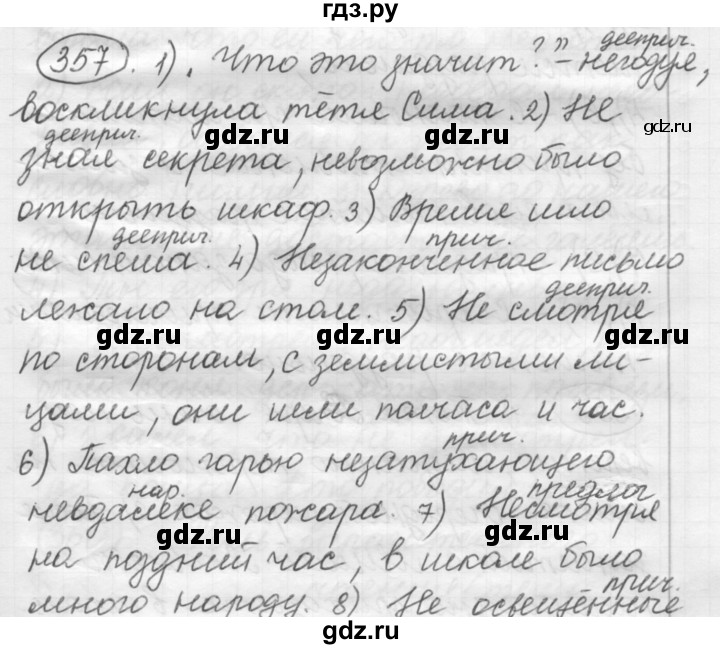 гдз.ру
дееприч.
357. 1). Что это значит?" - негодуя,
воскликнула тётя Сима. 2) Не
gdz.ru gdz.ru gdz.ru
дееприч.
зная секрета, невозможно было
открыть шкаф. 3) Время шло
дееприч. прич.
не спеша. 4) Незаконченное письмо
дееприч.
лежало на столе. 5) Не смотря
gdz.ru gdz.ru gdz.ru
по сторонам, с землистыми ли-
цами, они шли полчаса и час.
прич.
6) Пахло гарью незатухающего
нар. предлог
невдалеке пожара. 7) Несмотря
gdz.ru gdz.ru gdz.ru
на поздний час, в школе было
прич.
много народу. 8) Не освещённые
gdz.ru gdz.ru gdz.ru